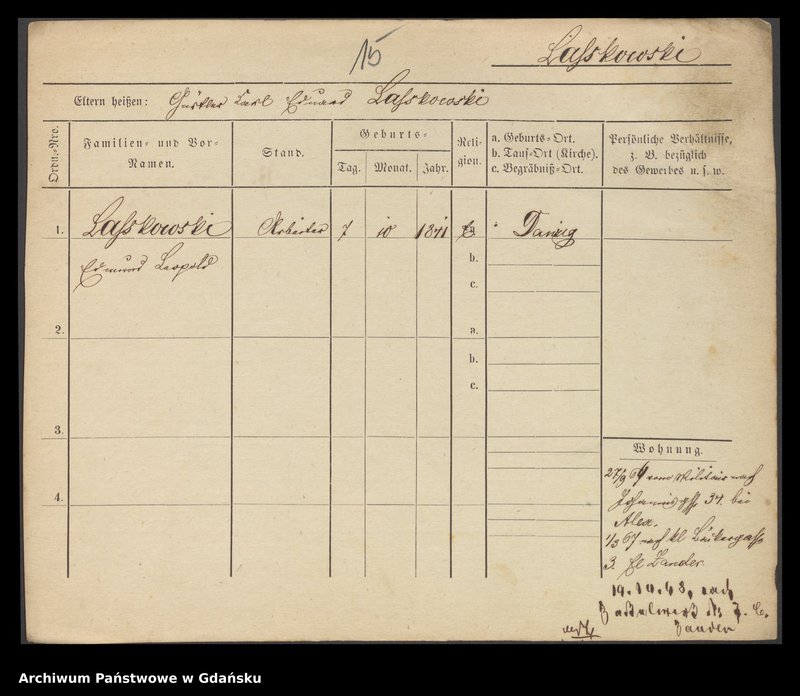 15
Laſskowski
Eltern heißen: Gürtler Carl Eduard Laſskowski
Ordn.-Nro.
Familien- und Vor-Namen.
Stand.
Geburts-
Tag. Monat. Jahr.
Reli-gion.
a. Geburts-Ort.
b. Tauf-Ort (Kirche).
c. Begräbniß-Ort.
Persönliche Verhältnisse,
z. B. bezüglich
des Gewerbes u. s. w.
1. Laſskowski Arbeiter 7 10 1841 Danzig
Edmund Leopold
b.
c.
2. a.
b.
c.
3.
4.
Wohnung.
27/9 64 vom Militair nach
Johannisgſs 34. bei
Alex.
1/3 67 nach kl Bäckergaſse
3. bei Zander
19.10.68, nach
Zander
Archiwum Państwowe w Gdańsku